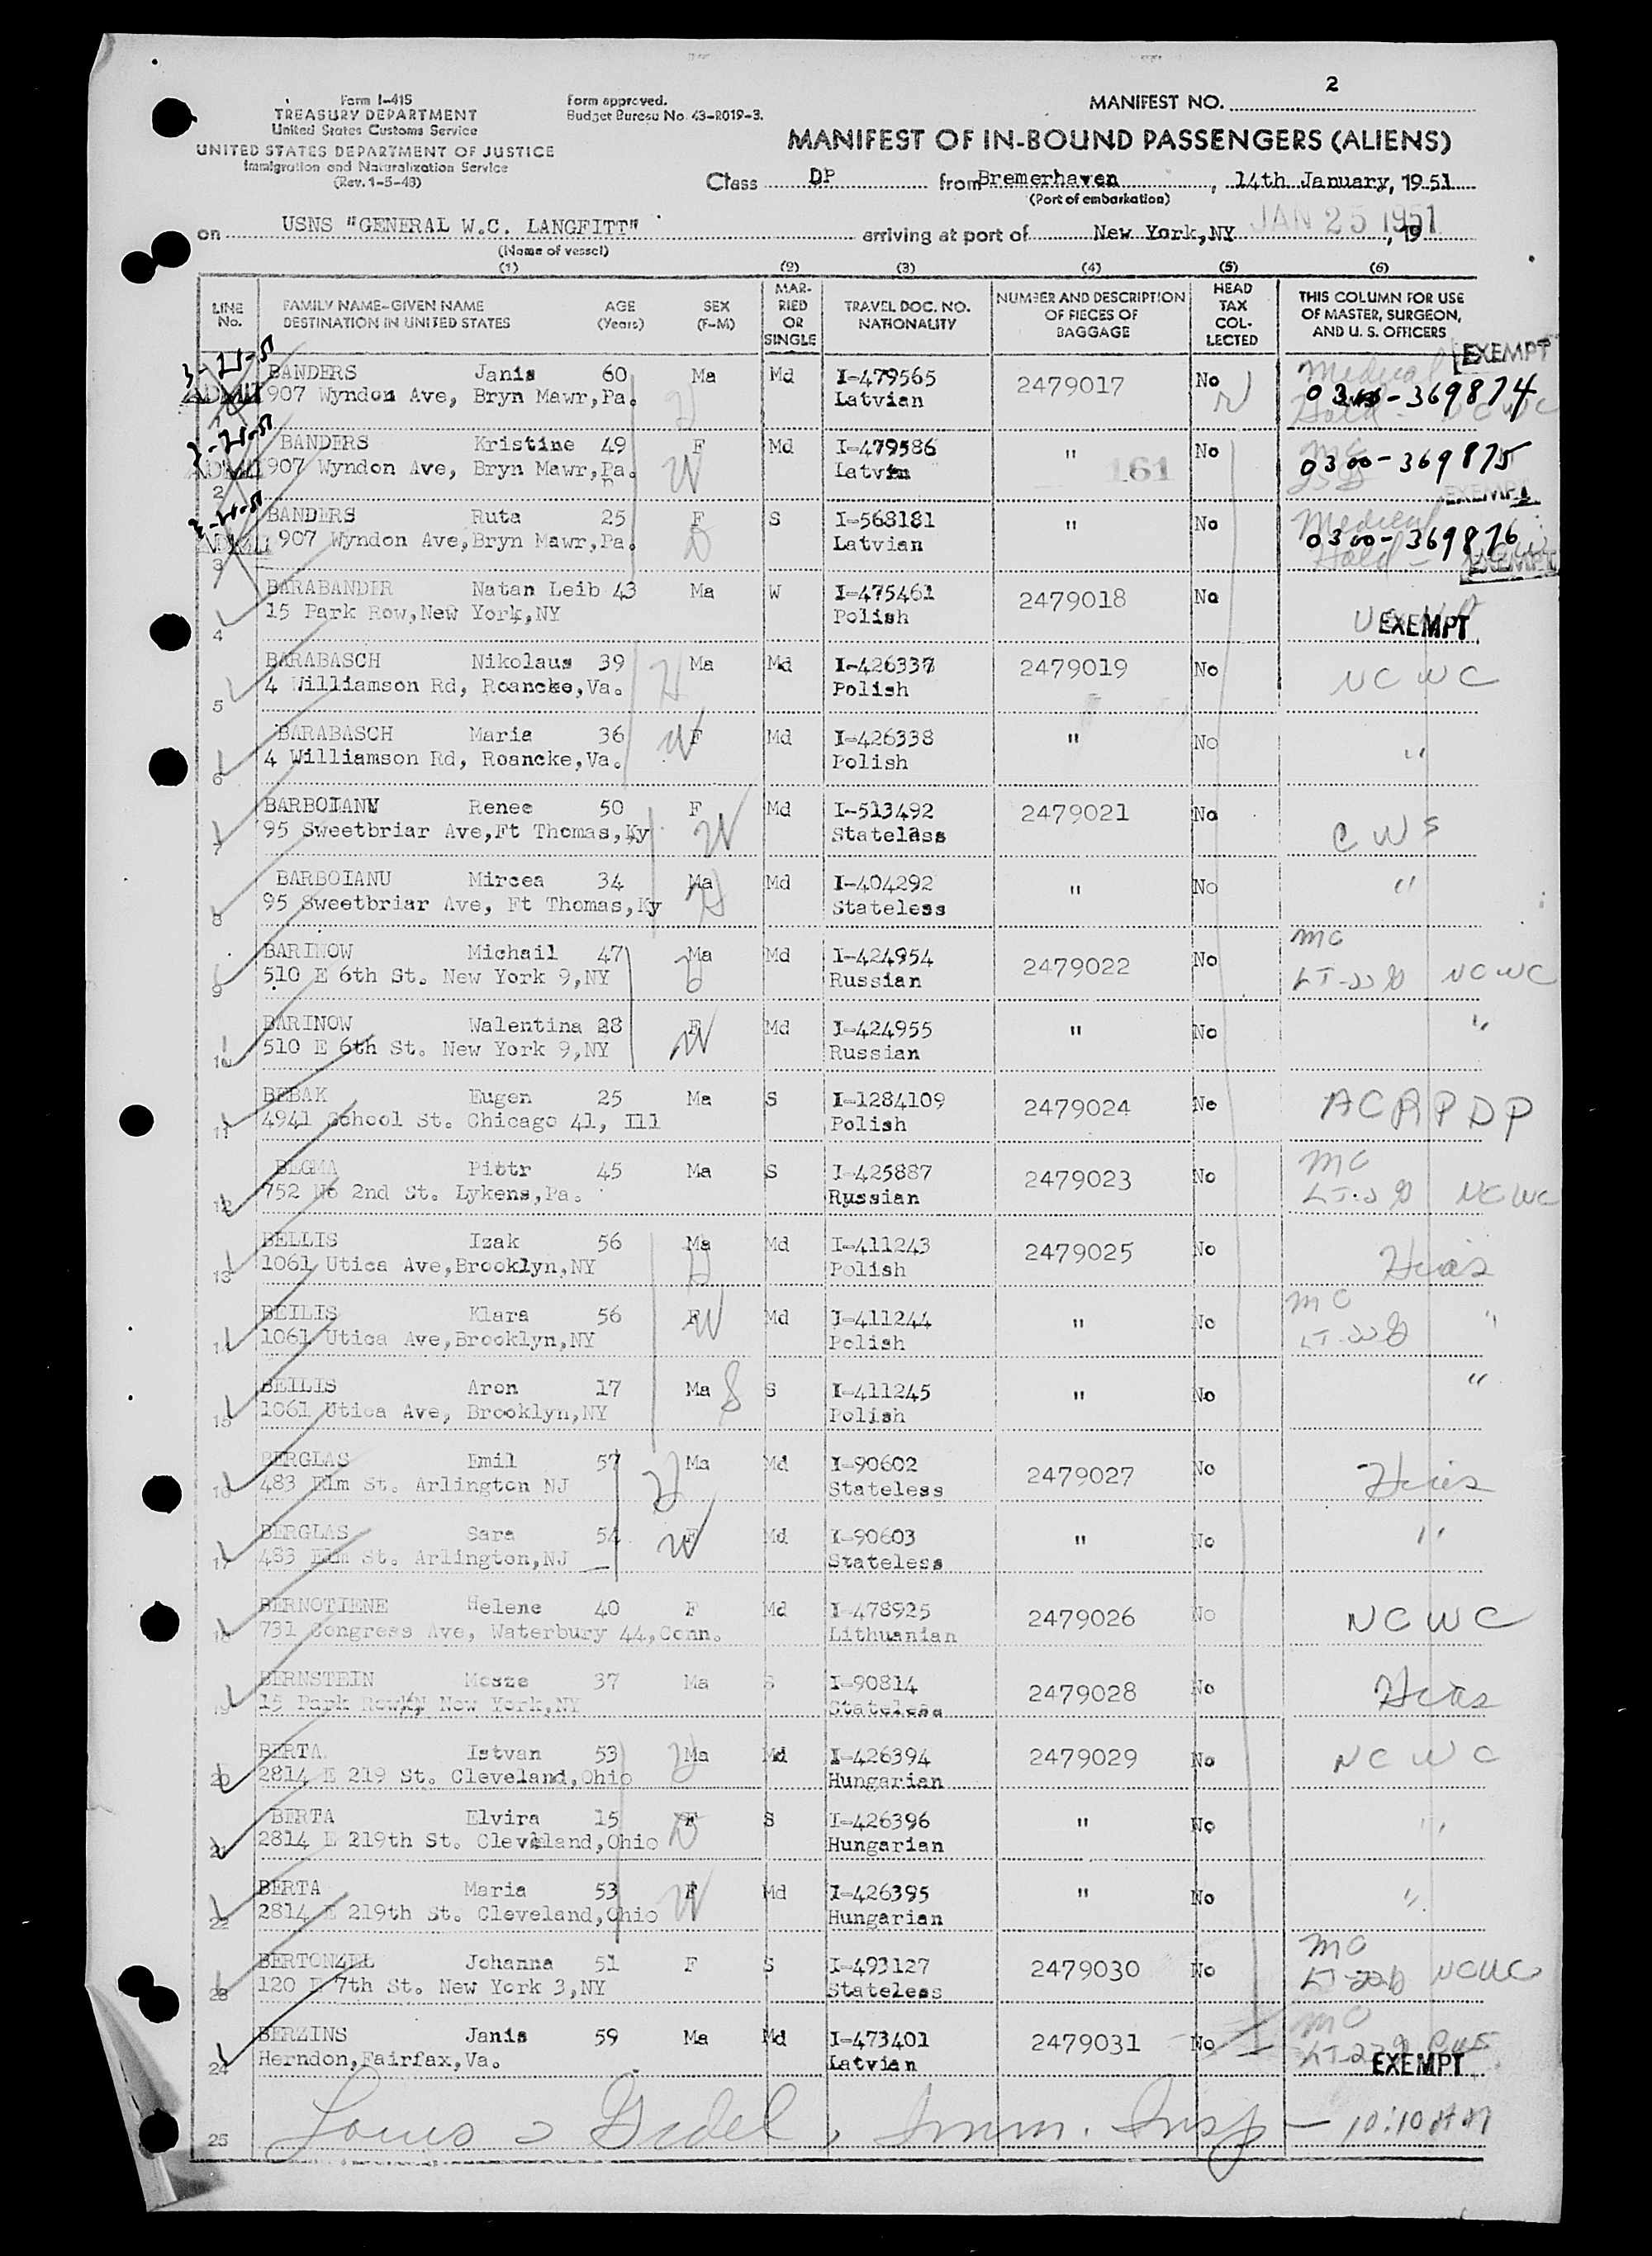 Form I-415
TREASURY DEPARTMENT
United States Customs Service
UNITED STATES DEPARTMENT OF JUSTICE
Immigration and Naturalization Service
(Rev. 1-5-48)
Form approved.
Budget Bureau No. 43-R019-3.
MANIFEST NO. 2
MANIFEST OF IN-BOUND PASSENGERS (ALIENS)
Class DP from Bremerhaven, 14th January, 1951
(Port of embarkation)
on USNS "GENERAL W.C. LANGFITT" arriving at port of New York,NY JAN 25 1951, 19
(Name of vessel)
(1) (2) (3) (4) (5) (6)
LINE No. FAMILY NAME-GIVEN NAME DESTINATION IN UNITED STATES AGE (Years) SEX (F-M) MARRIED OR SINGLE TRAVEL DOC. NO. NATIONALITY NUMBER AND DESCRIPTION OF PIECES OF BAGGAGE HEAD TAX COLLECTED THIS COLUMN FOR USE OF MASTER, SURGEON, AND U. S. OFFICERS
3-21-51 BANDERS Janis 60 Ma Md I-479565 2479017 No Medical EXEMPT
907 Wyndon Ave, Bryn Mawr,Pa. H Latvian 0300-369874 Hold NCWC
3-21-51 BANDERS Kristine 49 F Md I-479586 " No MC
907 Wyndon Ave, Bryn Mawr,Pa. W Latvin 161 0300-369875
2 EXEMPT
3-21-51 BANDERS Ruta 25 F S I-568181 " No Medical
907 Wyndon Ave,Bryn Mawr,Pa. D Latvian 0300-369876 Hold
3 EXEMPT
BARABANDIR Natan Leib 43 Ma W I-475461 2479018 No
15 Park Row,New York,NY Polish EXEMPT
4
BARABASCH Nikolaus 39 H Ma Md I-426337 2479019 No NCWC
4 Williamson Rd, Roancke,Va. Polish
5
BARABASCH Maria 36 W F Md I-426338 " No "
4 Williamson Rd, Roancke,Va. Polish
6
BARBOIANU Renee 50 F Md I-513492 2479021 No
95 Sweetbriar Ave,Ft Thomas,Ky W Stateless CWS
7
BARBOIANU Mircea 34 Ma Md I-404292 " No "
8 95 Sweetbriar Ave, Ft Thomas,Ky H Stateless
BARINOW Michail 47 Ma Md I-424954 2479022 No MC
9 510 E 6th St. New York 9,NY H Russian NCWC
BARINOW Walentina 28 F Md I-424955 " No "
10 510 E 6th St. New York 9,NY W Russian
BEBAK Eugen 25 Ma S I-1284109 2479024 No ACRPDP
11 4941 School St. Chicago 41, Ill Polish
BEGMA Piotr 45 Ma S I-425887 2479023 No MC
12 752 No 2nd St. Lykens,Pa. Russian NCWC
BELLIS Izak 56 Ma Md I-411243 2479025 No Hias
13 1061 Utica Ave,Brooklyn,NY H Polish
BEILIS Klara 56 F W Md I-411244 " No MC "
14 1061 Utica Ave,Brooklyn,NY Polish
BEILIS Aron 17 Ma S S I-411245 " No "
15 1061 Utica Ave, Brooklyn,NY Polish
BERGLAS Emil 57 H Ma Md I-90602 2479027 No Hias
16 483 Elm St. Arlington NJ Stateless
BERGLAS Sara 54 W F Md I-90603 " No "
17 483 Elm St. Arlington,NJ Stateless
BERNOTIENE Helene 40 F Md I-478925 2479026 No NCWC
18 731 Congress Ave, Waterbury 44,Conn. Lithuanian
BERNSTEIN Mosze 37 Ma S I-90814 2479028 No Hias
19 15 Park Row, New York,NY Stateless
BERTA Istvan 53 H Ma Md I-426394 2479029 No NCWC
20 2814 E 219 St. Cleveland,Ohio Hungarian
BERTA Elvira 15 F D S I-426396 " No "
21 2814 E 219th St. Cleveland,Ohio Hungarian
BERTA Maria 53 W F Md I-426395 " No "
22 2814 E 219th St. Cleveland,Ohio Hungarian
Johanna 51 F S I-493127 2479030 No MC
23 120 E 7th St. New York 3,NY Stateless NCWC
BERZINS Janis 59 Ma Md I-473401 2479031 No MC
24 Herndon,Fairfax,Va. Latvian EXEMPT
25 Imm. Insp - 10:10 AM